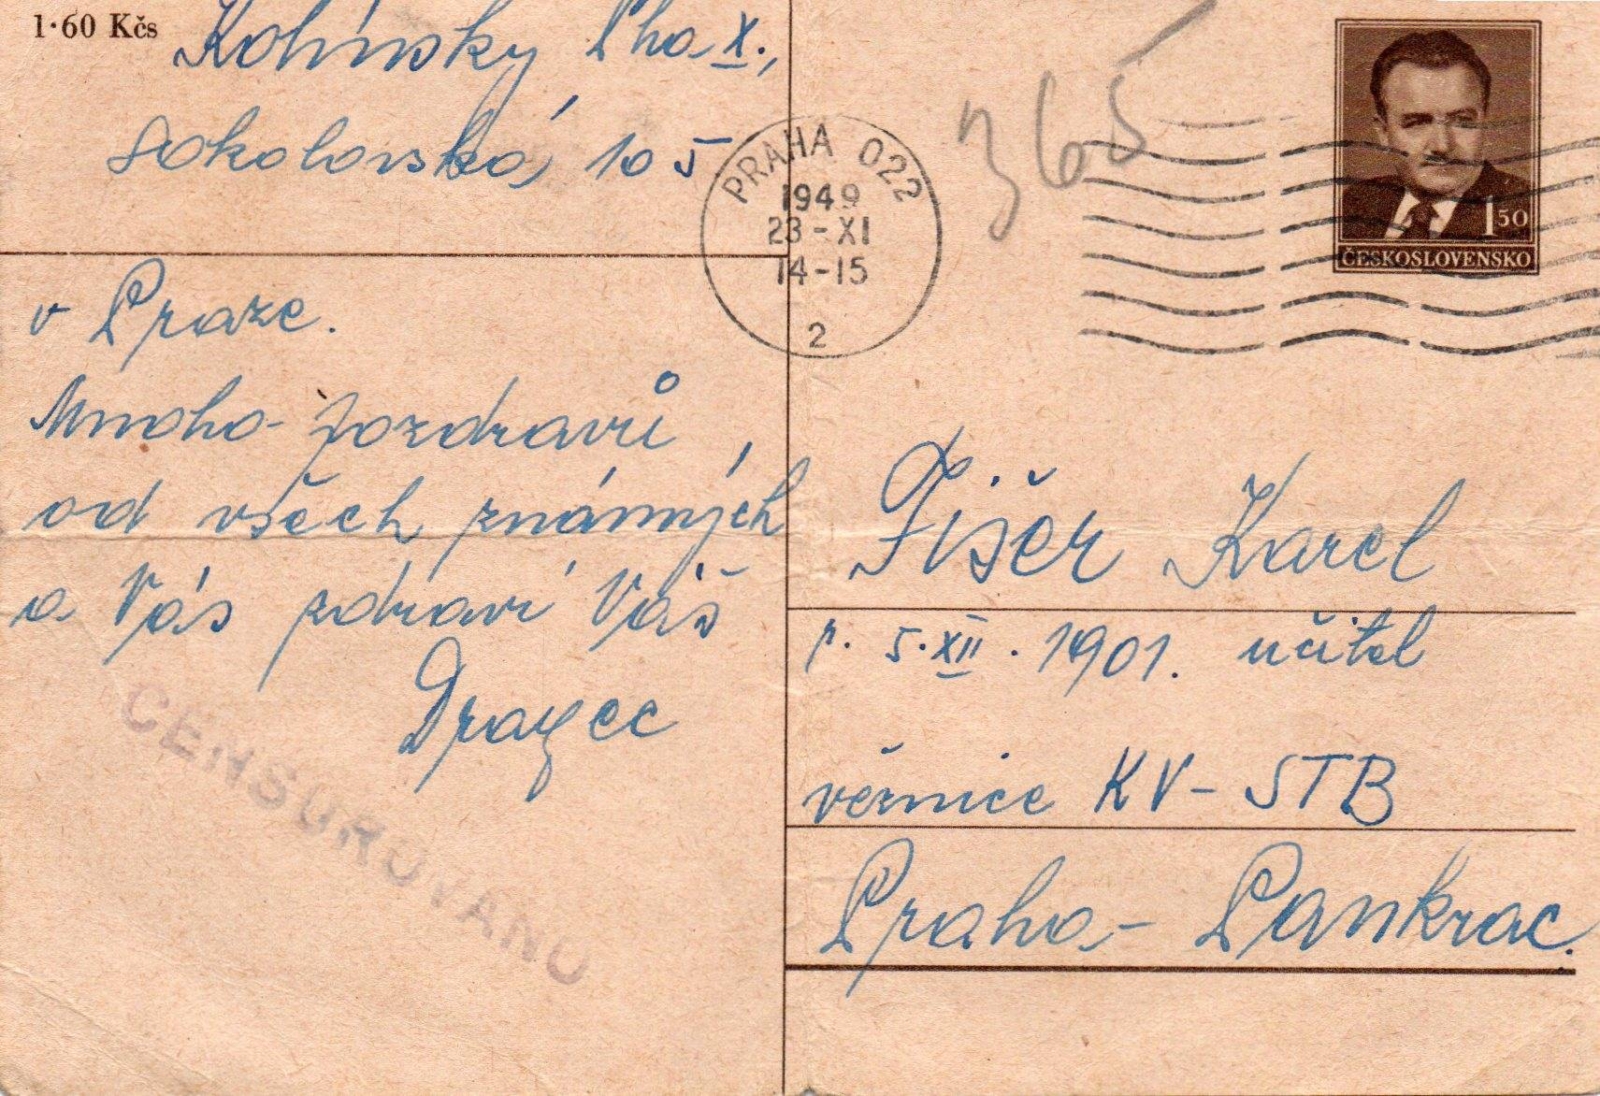 1·60 Kčs
Kolínský Pha X.,
Sokolovská 105
v Praze.
Mnoho pozdravů
od všech známých
a Vás zdraví Váš
CENSUROVÁNO
PRAHA 022
1949
23-XI
14-15
2
365
1 50
ČESKOSLOVENSKO
Fišer Karel
n. 5.XII. 1901. učitel
věznice KV-STB
Praha-Pankrac.